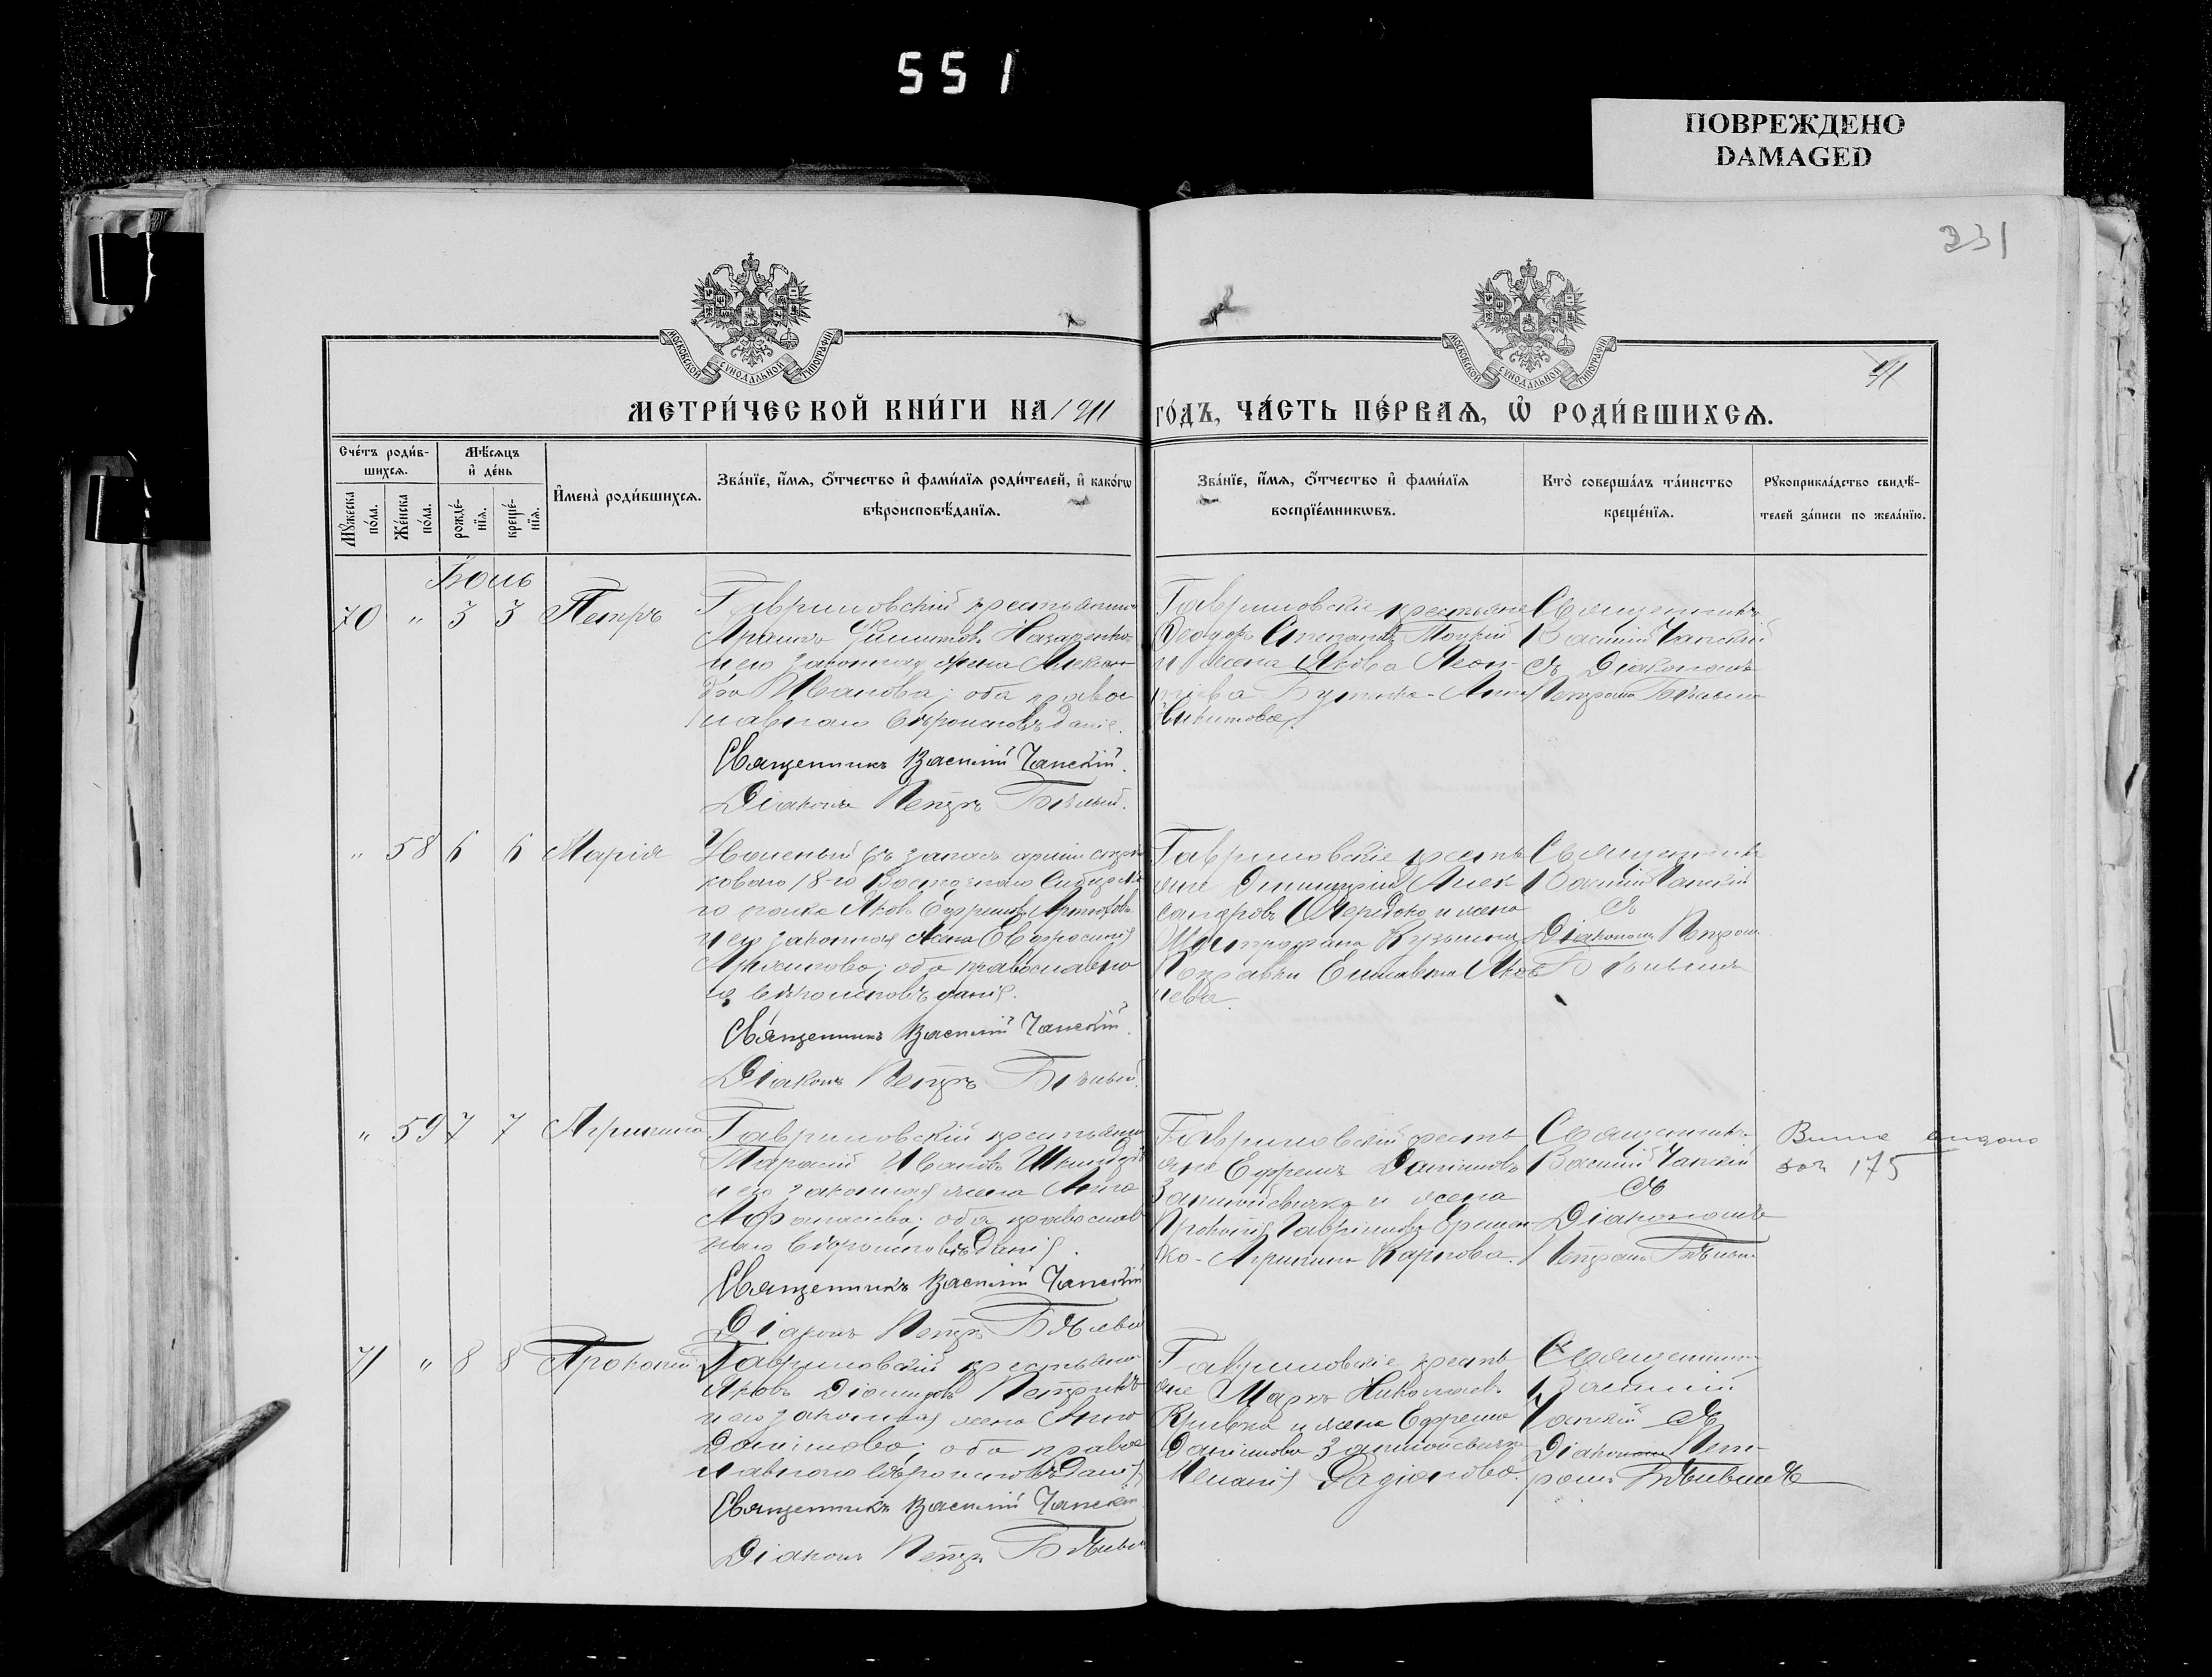 551
ПОВРЕЖДЕНО
DAMAGED
231
МОСКОВСКОЙ СУНОДАЛЬНОЙ ТИПОГРАФІИ
МОСКОВСКОЙ СУНОДАЛЬНОЙ ТИПОГРАФІИ
МЕТРИ́ЧЕСКОЙ КНИ́ГИ НА 1911
ГО́ДЪ, ЧА́СТЬ ПЕ́РВАѦ, Ѡ҆ РОДИ́ВШИХСѦ.
Сче́тъ роди́в-
шихсѧ.
Мꙋ́жеска
по́ла.
Же́нска
по́ла.
Мѣ́сѧцъ
и҆ де́нь
рожде́-
нїѧ.
креще́-
нїѧ.
И҆мена̀ роди́вшихсѧ.
Зва́нїе, и҆́мѧ, ѻ҆́тчество и҆ фами́лїѧ роди́телей, и҆ како́гѡ
вѣроисповѣ́данїѧ.
Зва́нїе, и҆́мѧ, ѻ҆́тчество и҆ фами́лїѧ
воспрїе́мникѡвъ.
Кто̀ соверша́лъ та́инство
креще́нїѧ.
Рꙋкоприкла́дство свидѣ́-
телей за́писи по жела́нїю.
70 " 3 3 Петръ
Гавриловскій крестьянинъ
Назаренко
и его законная жена Алексан-
дра Иванова; оба право
славнаго вѣроисповѣданія.
Священникъ Василій Чапскій.
Діаконъ Петръ Бѣлый.
Гавриловскіе крестьяне
Ѳеодоръ
и жена Якова Леон-
тіева Анна
Никитова.
Священникъ
Василій Чапскій
съ Діакономъ
Петромъ Бѣлымъ
" 58 6 6 Марія
въ запасъ арміи
18-го Восточнаго
полка Яковъ Ефремовъ
и его законная жена Евфросинія
оба православна
го вѣроисповѣданія.
Священникъ Василій Чапскій.
Діаконъ Петръ Бѣлый.
Гавриловскіе кресть
яне Димитрій Алек-
сандровъ и жена
Митрофана Кузьмина
Елисавета Яков
лева.
Священникъ
Василій Чапскій
съ
Діакономъ Петромъ
Бѣлымъ
" 59 7 7 Агрипина
Гавриловскій крестьянинъ
Тарасій Ивановъ
и его законная жена Анна
Афанасіева; оба православ
наго вѣроисповѣданія.
Священникъ Василій Чапскій
Діаконъ Петръ Бѣлый
Гавриловскій кресть
яне Ефремъ Даніиловъ
и жена
Прокопія Гавріилова Еремен
ко - Агрипина Карпова.
Священникъ
Василій Чапскій
съ
Діакономъ
Петромъ Бѣлымъ
175
71 " 8 8 Прокопій
Гавриловскій крестьянинъ
Яковъ Діомидовъ
и его законная жена Анна
Даніилова; оба право
славнаго вѣроисповѣданія
Священникъ Василій Чапскій
Діаконъ Петръ Бѣлый
Гавриловскіе кресть
яне Маркъ Николаевъ
Кривко и жена Ефрема
Даніилова
Меланія Радіонова.
Священникъ
Василій
Чапскій съ
Діакономъ Пет-
ромъ Бѣлымъ